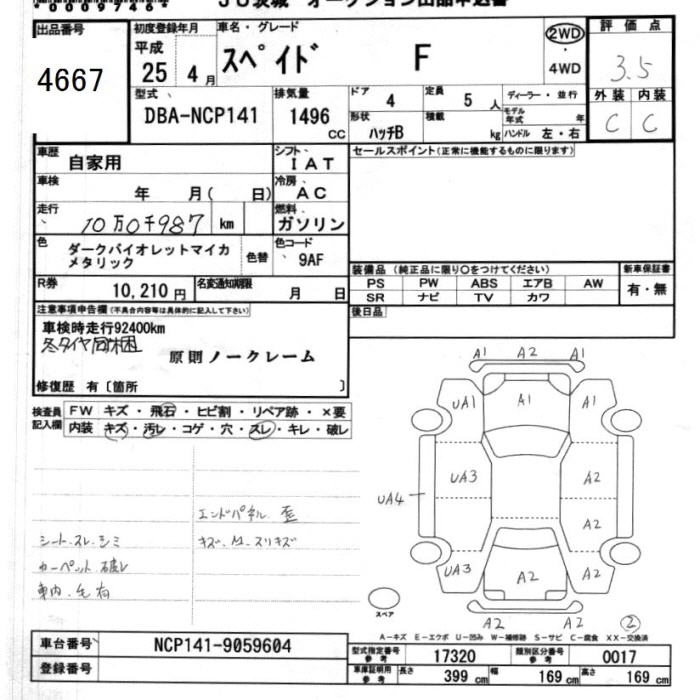 出品番号
4667
初度登録年月
平成
25 4月
車名・グレード
スペイド F
2WD
・
4WD
評価点
3.5
外装 内装
C C
型式、
DBA-NCP141
排気量
1496
CC
ドア
、 4
定員
、 5 人
形状
、 ハッチB
積載
、 kg
ディーラー・並行
モデル
年式 年
ハンドル 左・右
車歴
自家用
シフト、
I A T
セールスポイント(正常に機能するものに限ります)
車検
、 年 月( 日)
冷房、
A C
走行
、 10万0千987 km
燃料、
ガソリン
色
ダークバイオレットマイカ
メタリック
色替
色コード
、 9AF
R券
10,210 円
名変通知期限
月 日
装備品 (純正品に限り○をつけてください)
PS PW ABS エアB AW
SR ナビ TV カワ
新車保証書
有・無
後日品
注意事項申告欄(不具合内容等は具体的に記入して下さい)
車検時走行92400km
冬タイヤ同梱
原則ノークレーム
修復歴 有〔箇所 〕
検査員
記入欄
FW キズ・飛石・ヒビ割・リペア跡・×要
内装 キズ・汚レ・コゲ・穴・スレ・キレ・破レ
エンドパネル 歪
シート.スレ.シミ キズ.M.スリキズ
カーペット破レ
車内.毛有
A1 A2 A1
UA1 A1 A1
UA3 A2
UA4
A2
UA3 A2 A2
A2 A2 ②
スペア
A-キズ E-エクボ U-凹み W-補修跡 S-サビ C-腐食 XX-交換済
車台番号
NCP141-9059604
登録番号
型式指定番号
参考
17320
類別区分番号
参考
0017
車庫証明用
参考
長さ
399 cm
幅
169 cm
高さ
169 cm